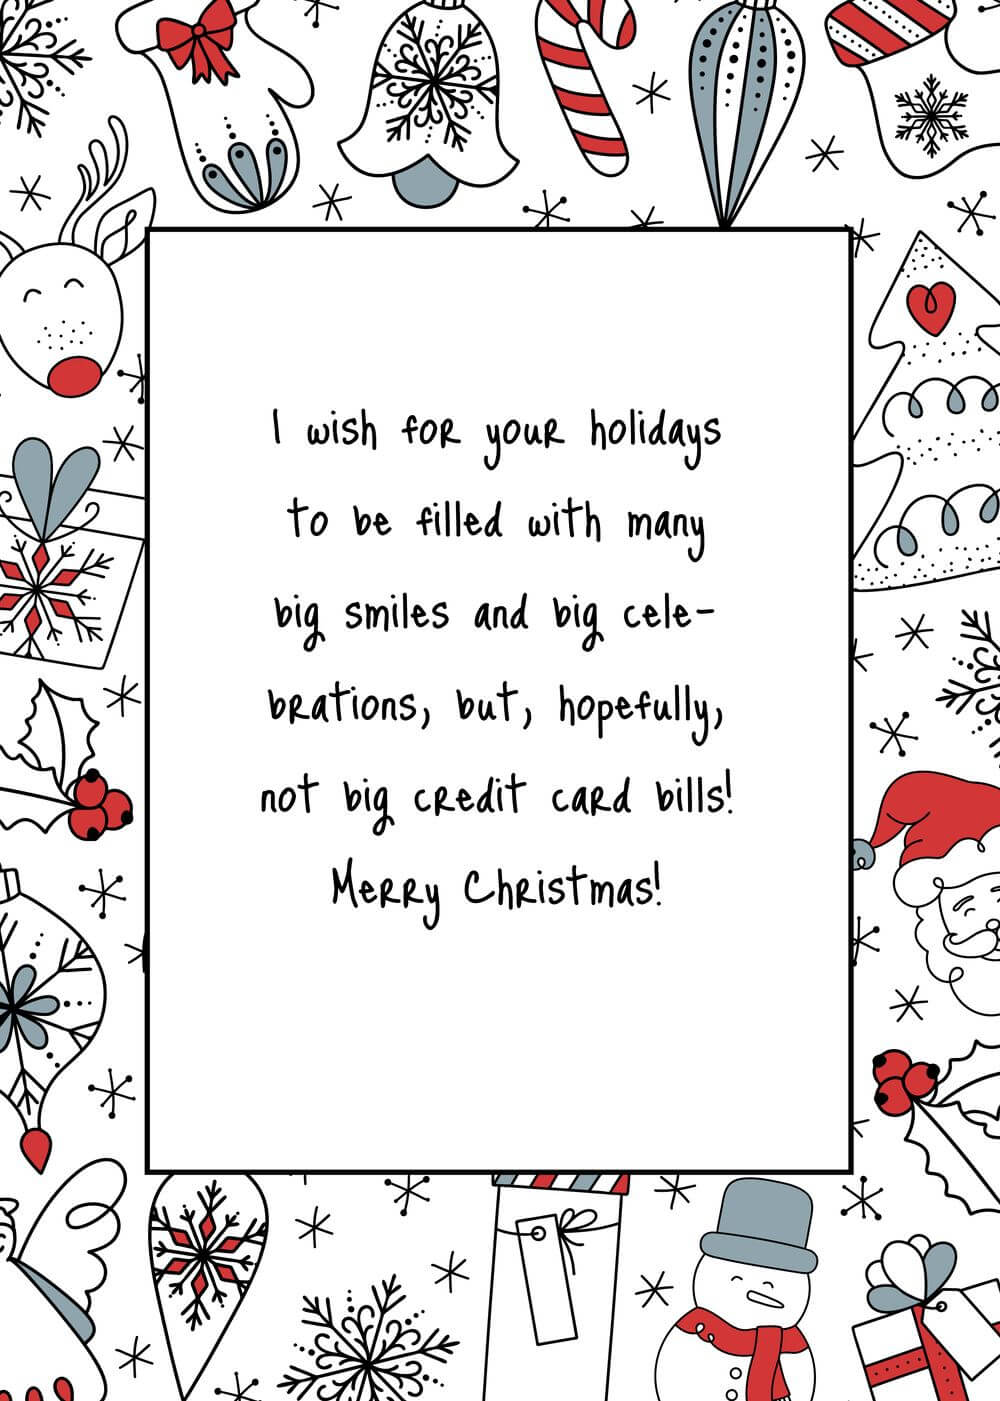 I wish for your holidays
to be filled with many
big smiles and big cele-
brations, but, hopefully,
not big credit card bills!
Merry Christmas!